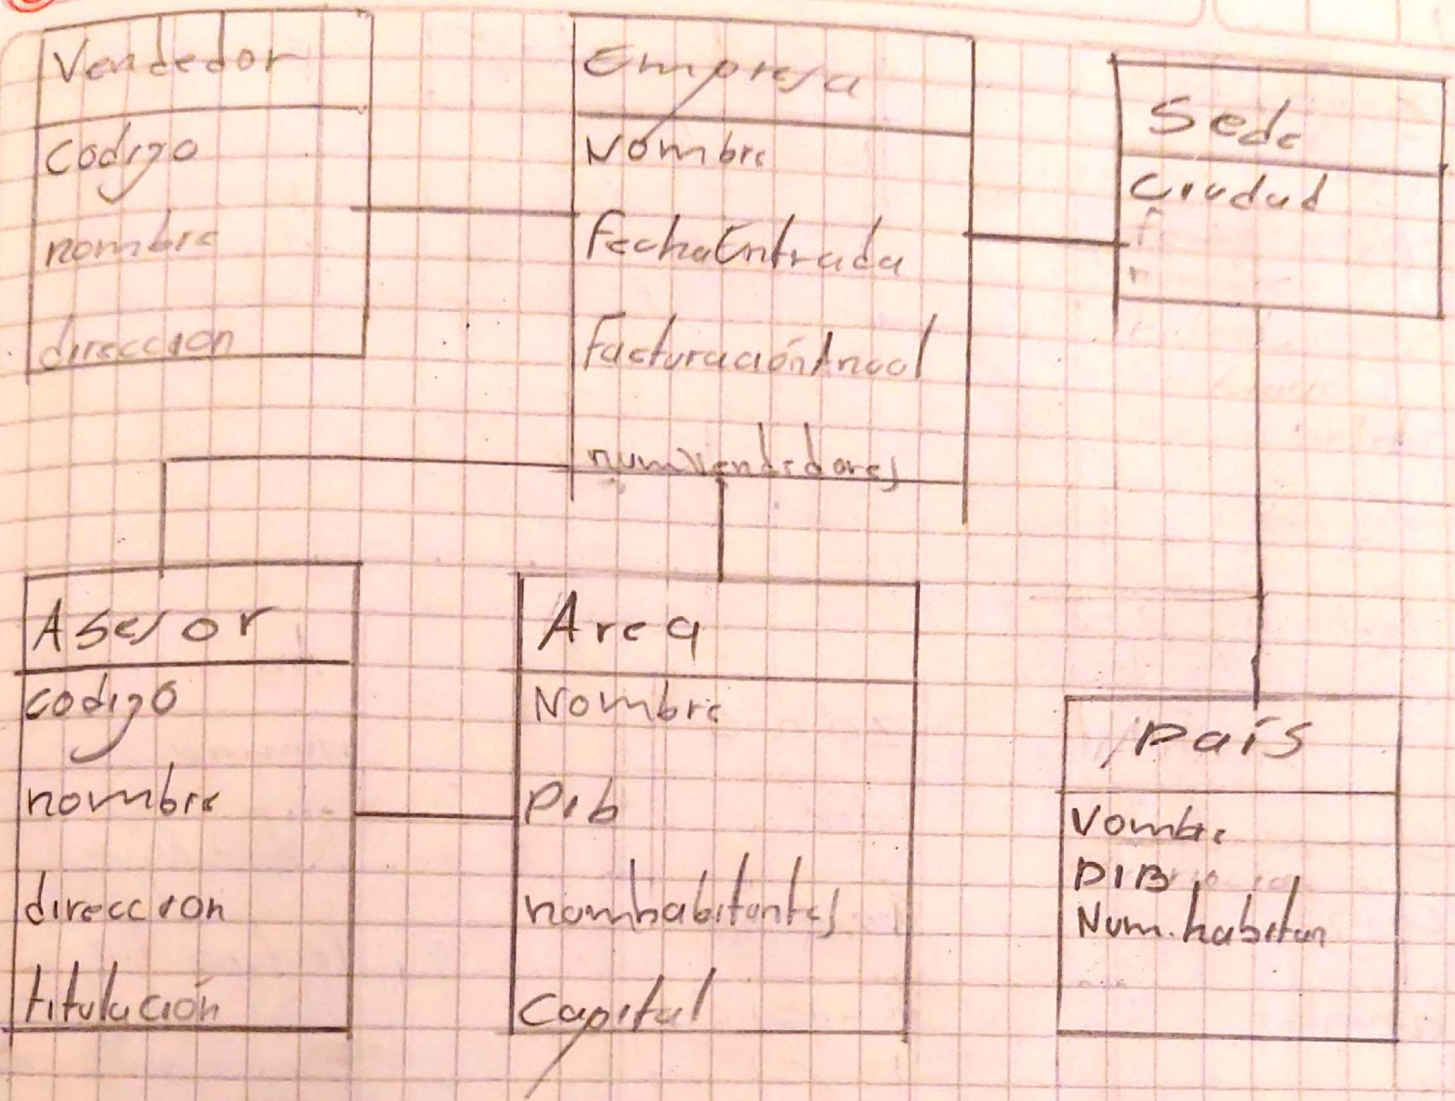 Vendedor
Codigo
nombre
direccion
Empresa
Nombre
FechaEntrada
FacturaciónAnual
numVendedores
Sede
Ciudad
Asesor
codigo
nombre
direccion
titulación
Area
Nombre
Pib
numhabitantes
Capital
país
Nombre
PIB
Num.habitan